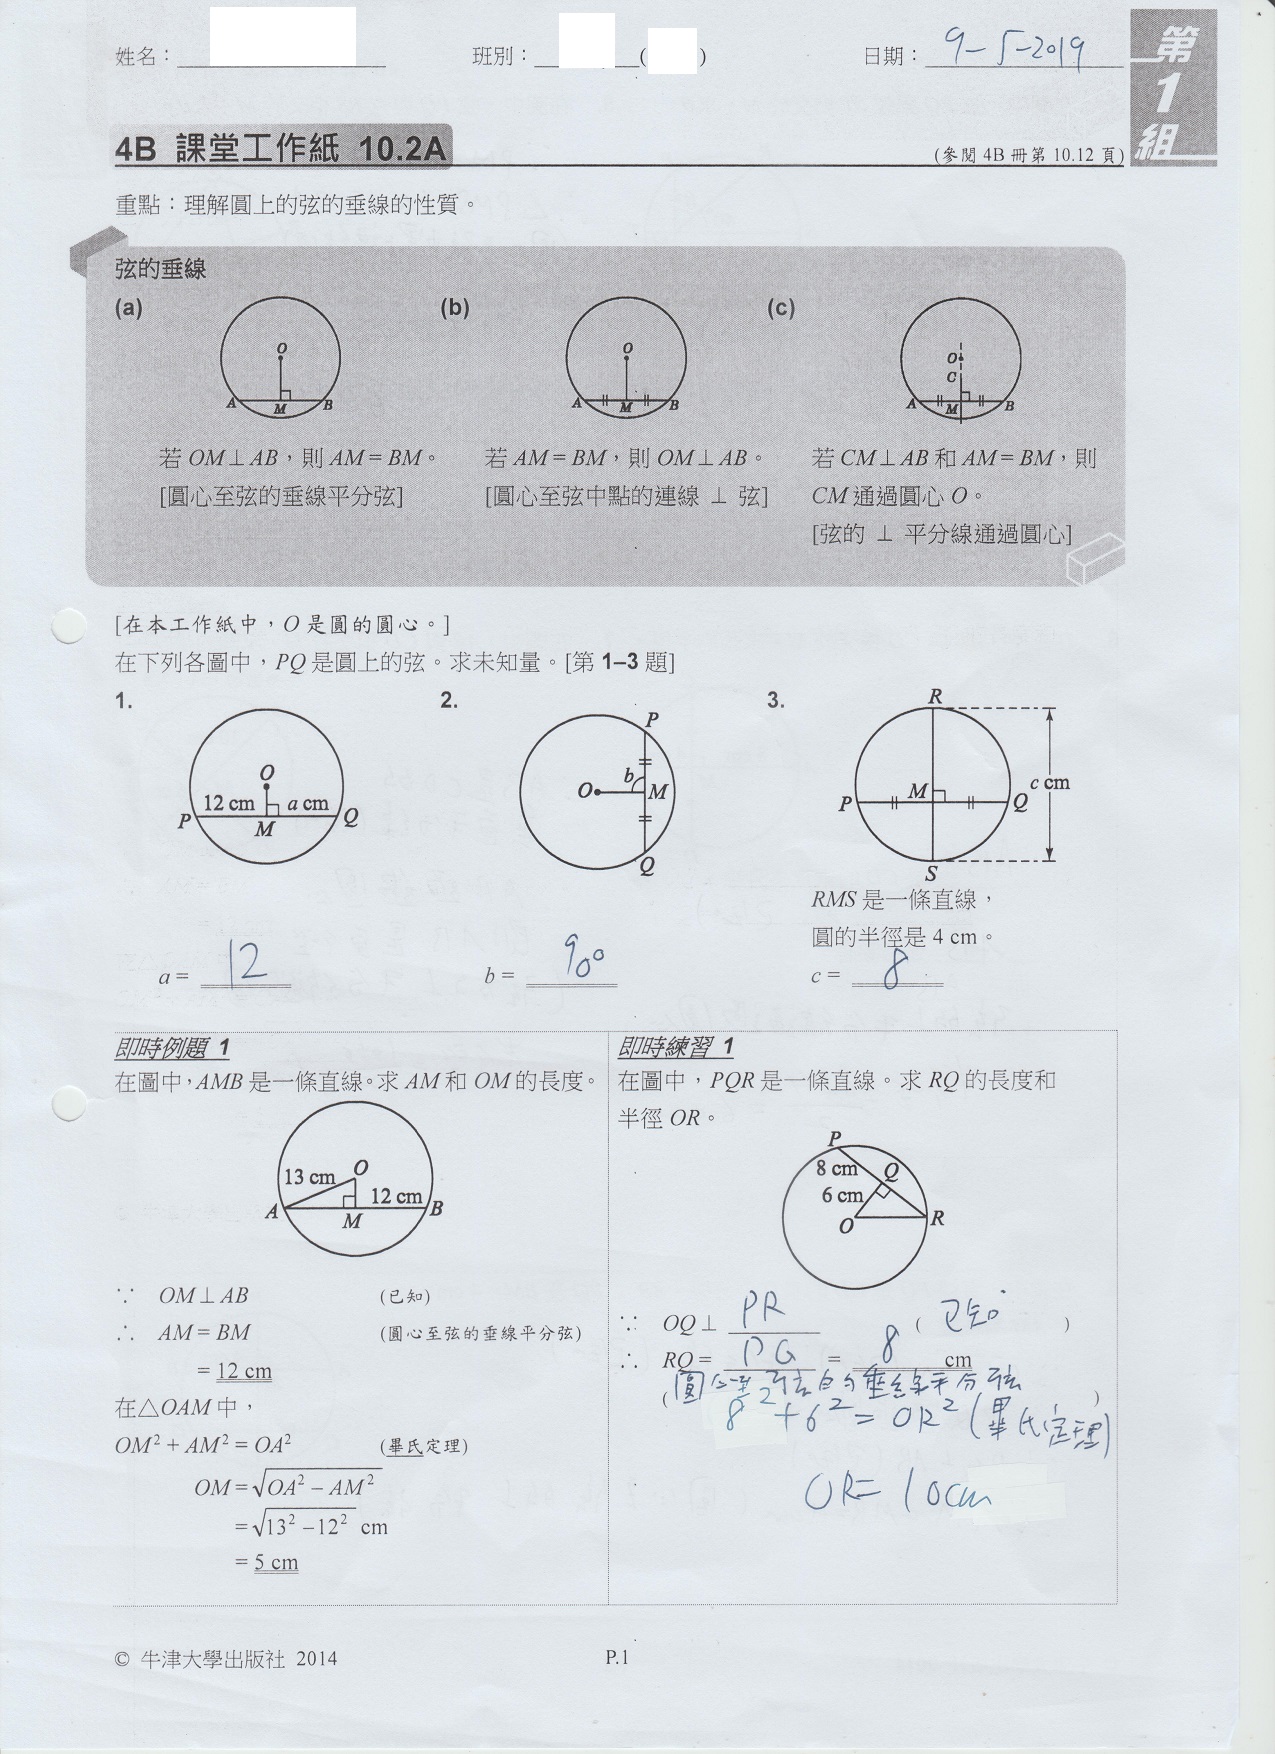 姓名：
班別： ( )
日期： 9-5-2019
第
1
組
4B 課堂工作紙 10.2A
(參閱 4B 冊第 10.12 頁)
重點：理解圓上的弦的垂線的性質。
弦的垂線
(a) (b) (c)
O A M B
O A M B
O C A M B
若 OM⊥AB，則 AM = BM。
[圓心至弦的垂線平分弦]
若 AM = BM，則 OM⊥AB。
[圓心至弦中點的連線 ⊥ 弦]
若 CM⊥AB 和 AM = BM，則
CM 通過圓心 O。
[弦的 ⊥ 平分線通過圓心]
[在本工作紙中，O 是圓的圓心。]
在下列各圖中，PQ 是圓上的弦。求未知量。[第 1–3 題]
1.
O
12 cm a cm
P M Q
a = 12
2.
P
b
O M
Q
b = 90°
3.
R
M
P Q c cm
S
RMS 是一條直線，
圓的半徑是 4 cm。
c = 8
即時例題 1
在圖中，AMB 是一條直線。求 AM 和 OM 的長度。
13 cm O
12 cm
A M B
∵ OM⊥AB (已知)
∴ AM = BM (圓心至弦的垂線平分弦)
= 12 cm
在△OAM 中，
OM² + AM² = OA² (畢氏定理)
OM = √OA² – AM²
= √13² –12² cm
= 5 cm
即時練習 1
在圖中，PQR 是一條直線。求 RQ 的長度和
半徑 OR。
P
8 cm Q
6 cm
O R
∵ OQ⊥ PR (已知)
∴ RQ = PQ = 8 cm
(圓心至弦的垂線平分弦)
8² + 6² = OR² (畢氏定理)
OR = 10cm
© 牛津大學出版社 2014
P.1